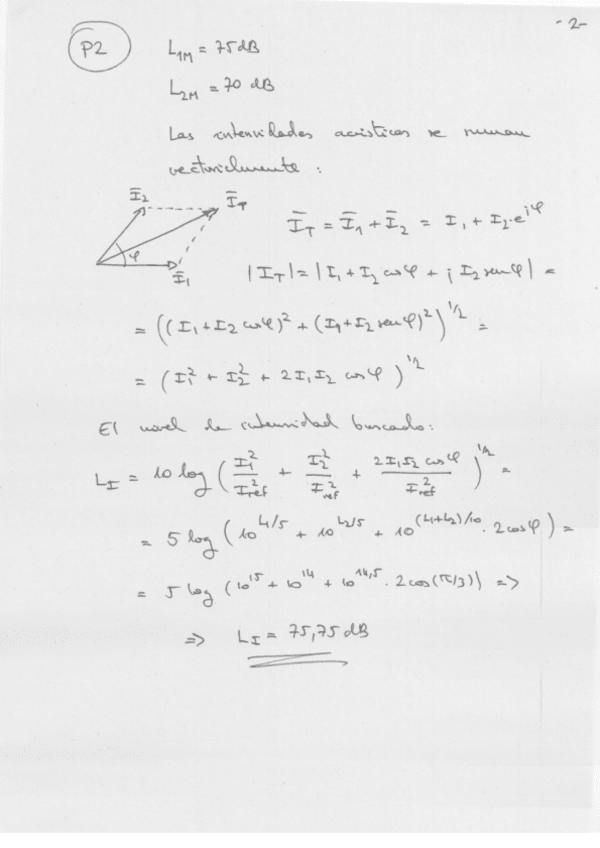 -2-
P2
L1M = 75 dB
L2M = 70 dB
Las intensidades acústicas se suman
vectorialmente:
Ī2 ĪT
φ
Ī1
ĪT = Ī1 + Ī2 = I1 + I2·e^iφ
|IT| = |I1 + I2 cosφ + j I2 senφ| =
= ((I1 + I2 cosφ)² + (I1 + I2 senφ)²)^1/2 =
= (I1² + I2² + 2I1I2 cosφ)^1/2
El nivel de intensidad buscado:
LI = 10 log (I1²/Iref² + I2²/Iref² + 2I1I2 cosφ/Iref²)^1/2 =
= 5 log (10^L1/5 + 10^L2/5 + 10^(L1+L2)/10 · 2cosφ) =
= 5 log (10^15 + 10^14 + 10^14,5 · 2cos(π/3)) =>
=> LI = 75,75 dB